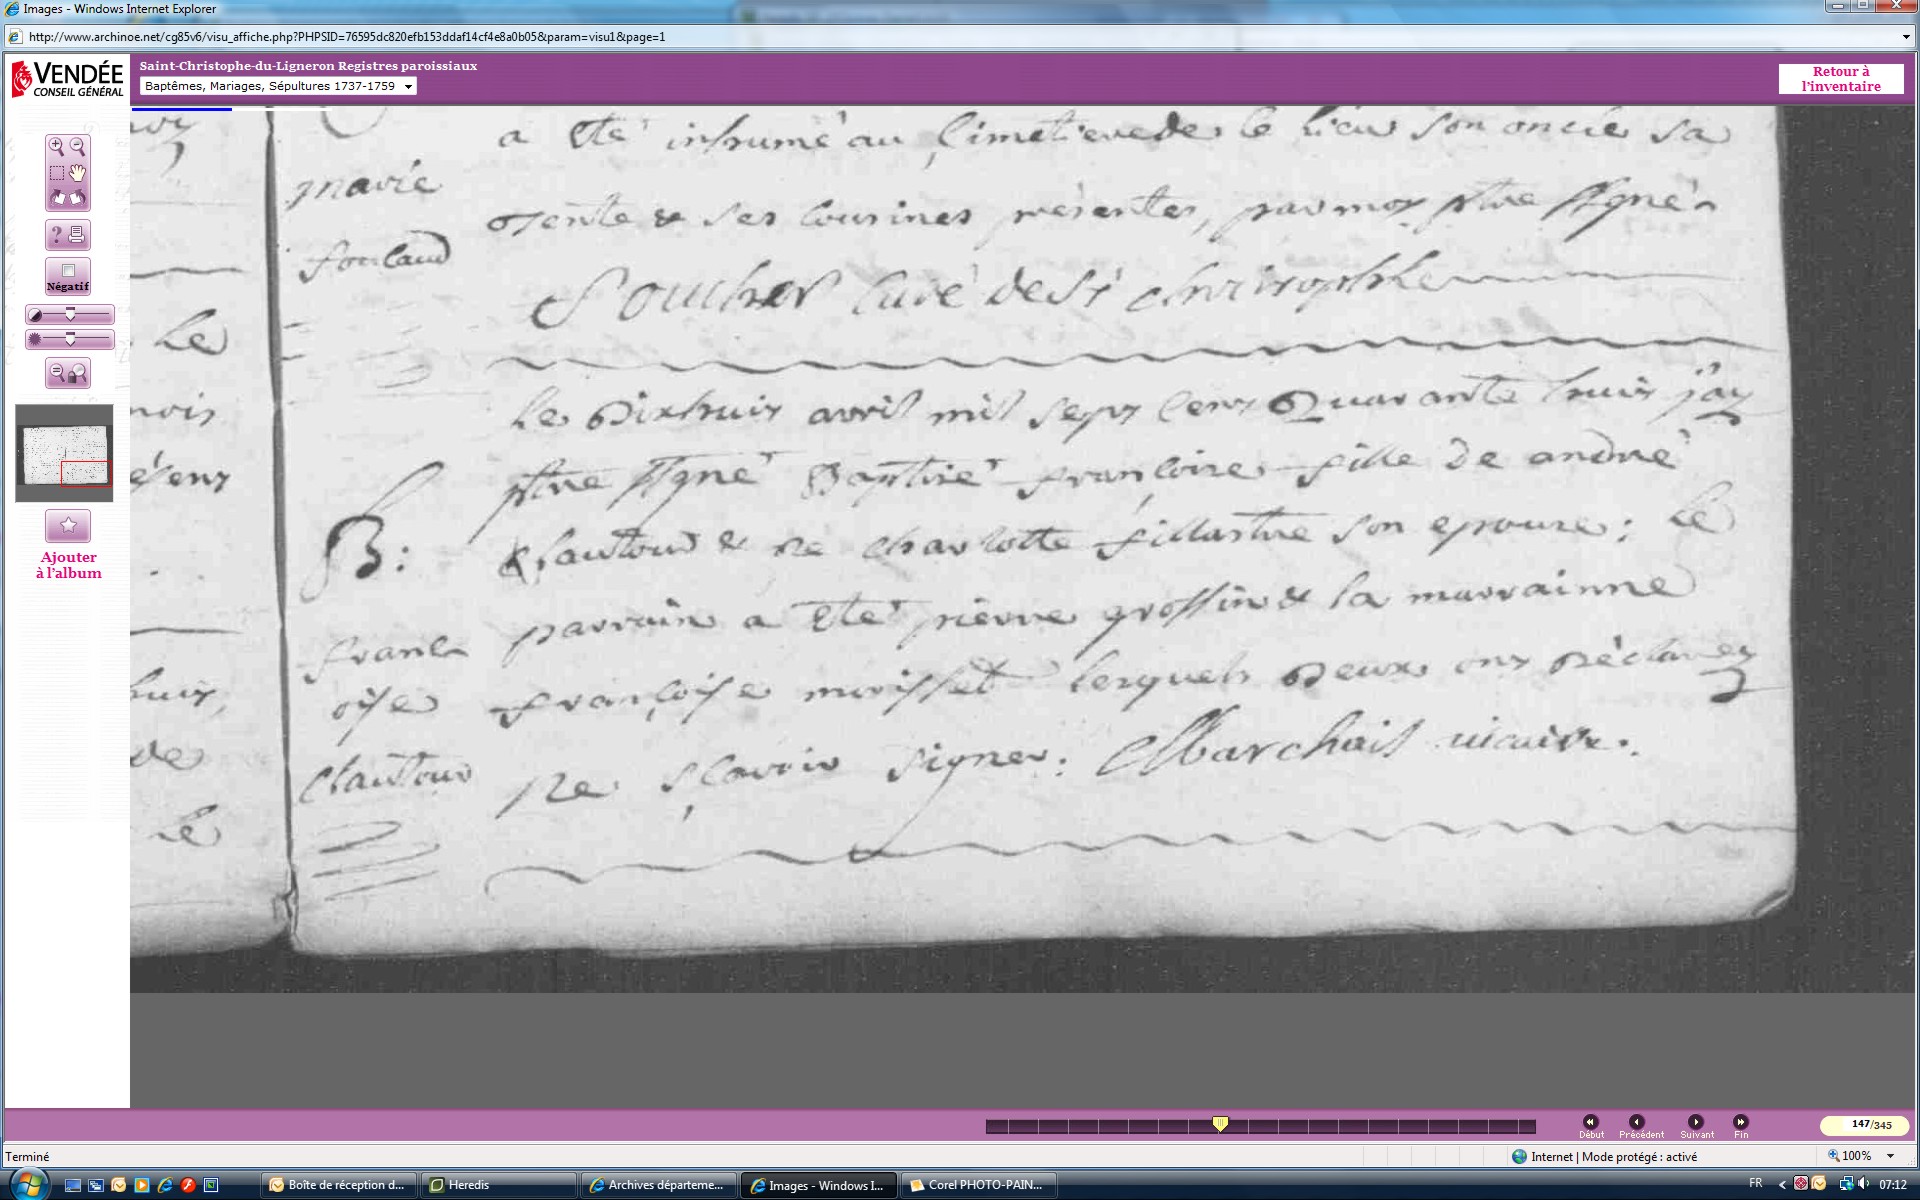 Images - Windows Internet Explorer
http://www.archinoe.net/cg85v6/visu_affiche.php?PHPSID=76595dc820efb153ddaf14cf4e8a0b05&param=visu1&page=1
VENDÉE
CONSEIL GÉNÉRAL
Saint-Christophe-du-Ligneron Registres paroissiaux
Baptêmes, Mariages, Sépultures 1737-1759
Retour à
l'inventaire
Négatif
Ajouter
à l'album
a été inhumé au Cimetiere de ce lieu son oncle sa
tente & ses cousines présentes, par moy ptre ssigné
curé de St christophle
marie
Le Dixhuit avril mil sept cent Quarante huit j'ay
ptre ssigné Baptisé françoise fille de andré
Chautous & de charlotte fillastre son epouse; le
parrain a été pierre grossin & la marrainne
françoise morisset lesquels deux ont déclarez
ne sçavoir signer. Marchais vicaire.
B:
franc
oise
Chautous
le
nois
huit,
de
le
147/345
Début
Précédent
Suivant
Fin
Terminé
Internet | Mode protégé : activé
100%
Boîte de réception d...
Heredis
Archives départeme...
Images - Windows I...
Corel PHOTO-PAIN...
FR
07:12